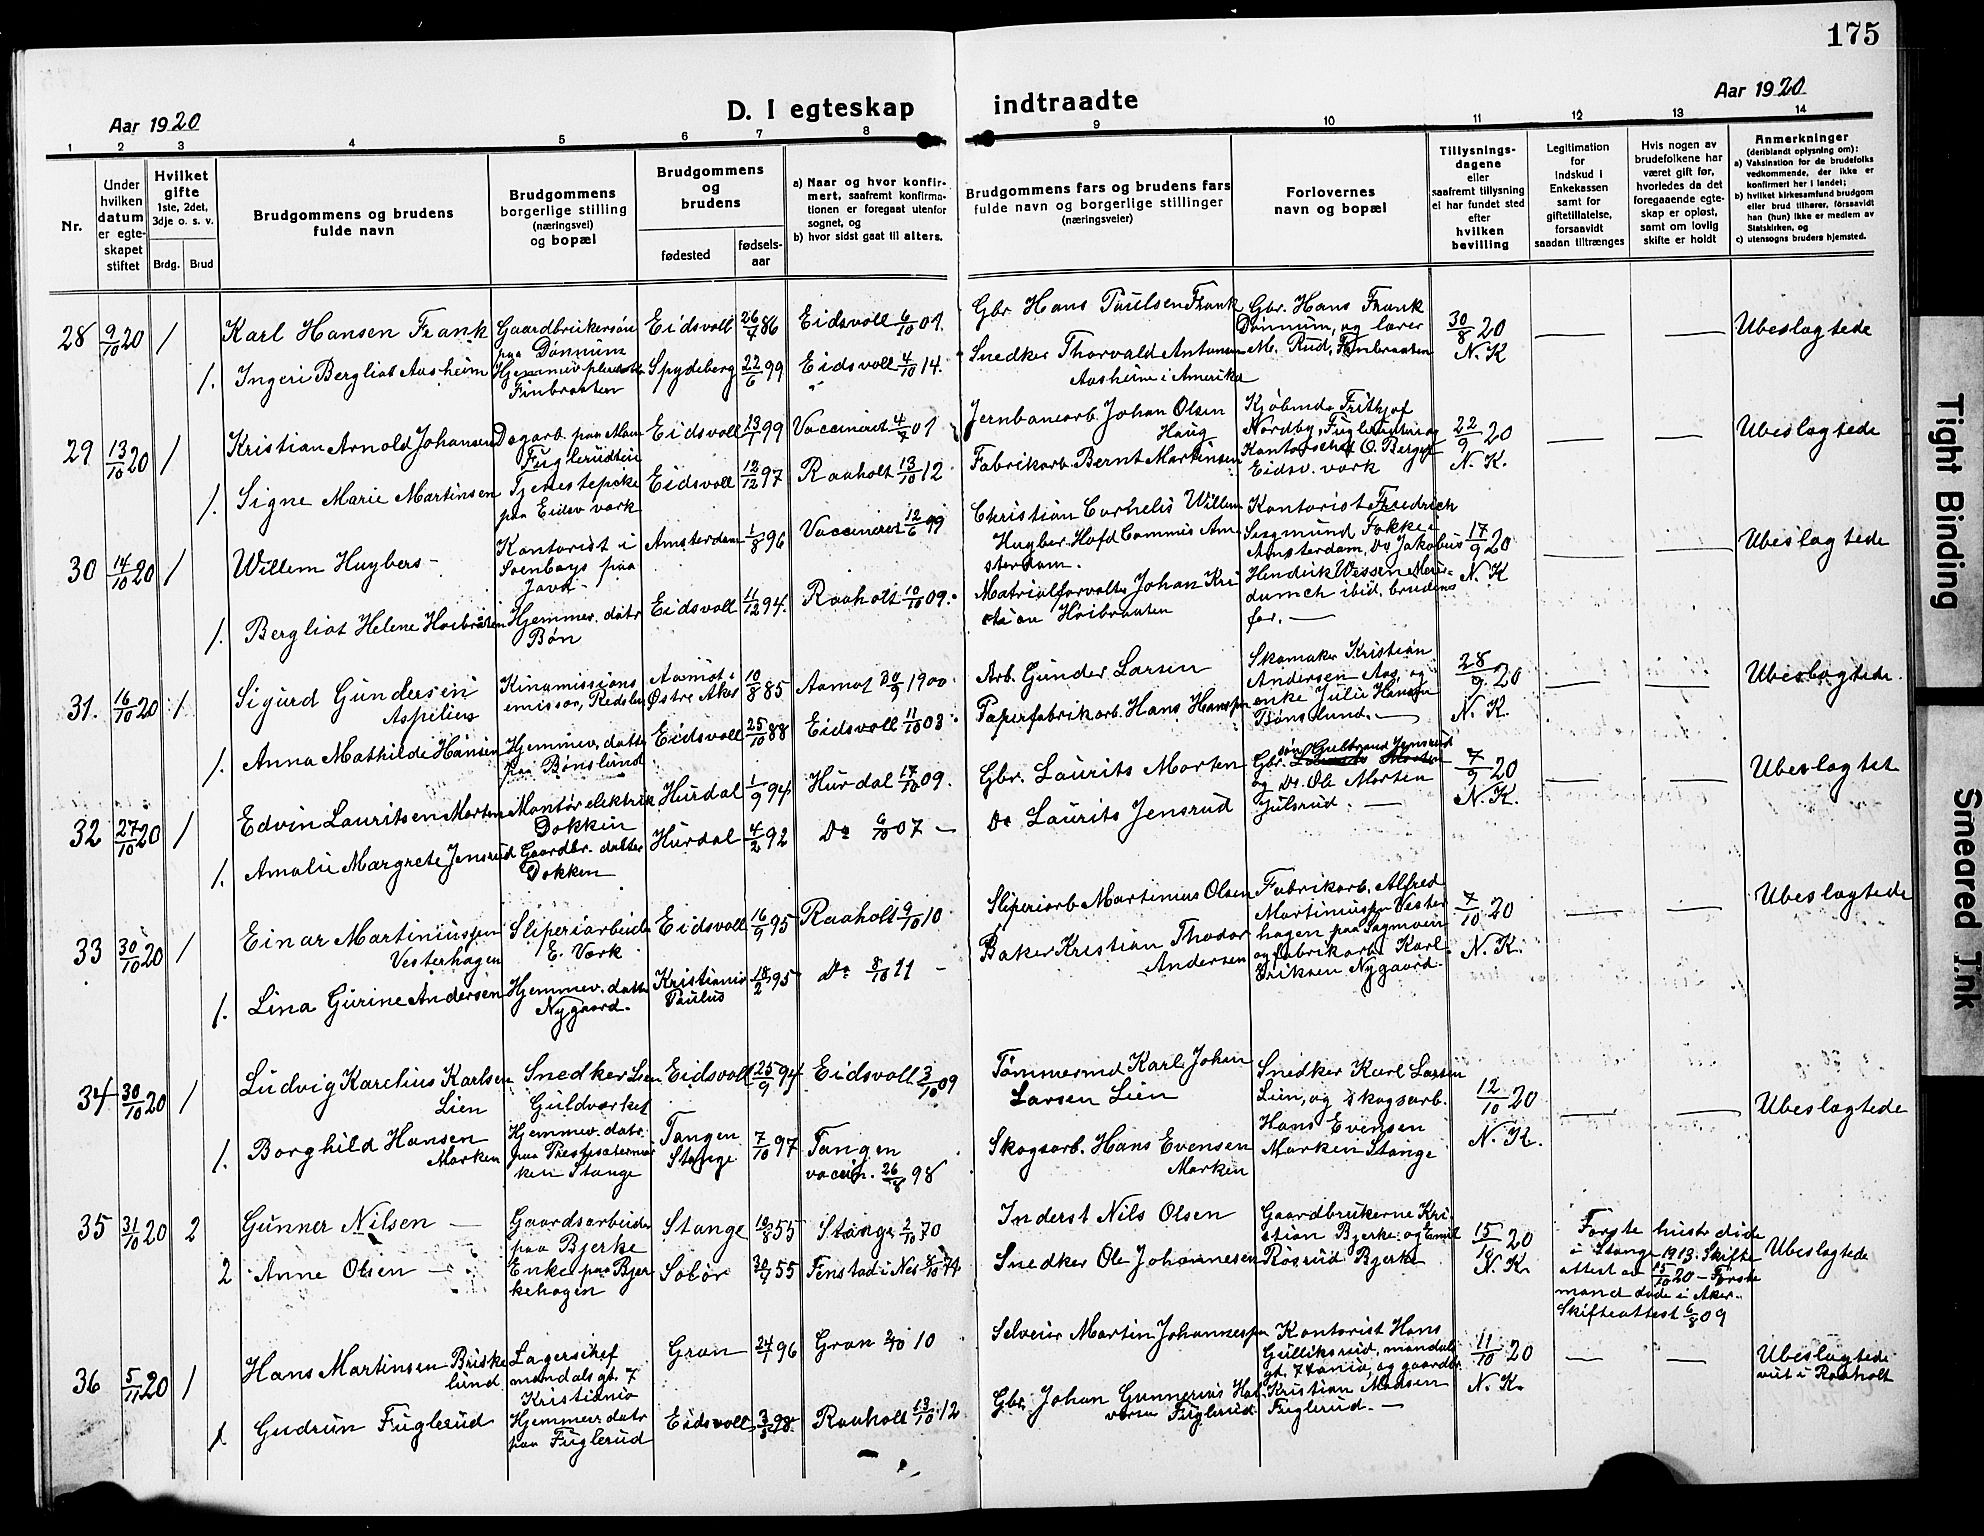 175
Aar 1920
D. I egteskap indtraadte
Aar 1920
1 2 3 4 5 6 7 8 9 10 11 12 13 14
Nr.
Under hvilken datum er egteskapet stiftet
Hvilket gifte
1ste, 2det, 3dje o. s. v.
Brdg. Brud
Brudgommens og brudens fulde navn
Brudgommens borgerlige stilling (næringsvei) og bopæl
Brudgommens og brudens
fødested
fødselsaar
a) Naar og hvor konfirmert, saafremt konfirmationen er foregaat utenfor sognet, og
b) hvor sidst gaat til alters.
Brudgommens fars og brudens fars fulde navn og borgerlige stillinger (næringsveier)
Forlovernes navn og bopæl
Tillysningsdagene eller saafremt tillysning ei har fundet sted efter hvilken bevilling
Legitimation for Indskud i Enkekassen samt for giftetillatelse, forsaavidt saadan tiltrænges
Hvis nogen av brudefolkene har været gift før, hvorledes da det foregaaende egteskap er opløst, samt om lovlig skifte er holdt
Anmerkninger (deriblandt oplysning om):
a) Vaksination for de brudefolks vedkommende, der ikke er konfirmert her i landet;
b) hvilket kirkesamfund brudgom eller brud tilhører, forsaavidt han (hun) ikke er medlem av Statskirken, og
c) utensogns bruders hjemsted.
28 9/10 20 1 Karl Hansen Frank Gaardbrukersøn paa Dønnum Eidsvoll 26/4 86 Eidsvoll 6/10 01. Gbr. Hans Paulsen Frank Gbr. Hans Frank Dønnum, og lærer M. Rud, Finbraaten 30/8 20 N. K — — Ubeslagtede
1. Ingeri Bergliot Aasheim Hjemmev. Finbraaten Spydeberg 22/6 99 Eidsvoll 4/10 14. Snedker Thorvald Antonsen Aasheim i Amerika
29 13/10 20 1 Kristian Arnold Johansen Dagarb. paa Fuglerudteie Eidsvoll 13/1 99 Vaccineret 4/7 01 Jernbanearb. Johan Olsen Haug Kjøbmd. Frithjof Nordby, og Kontorschef O. Berger Eidsv. værk 22/9 20 N. K. — — Ubeslagtede
1. Signe Marie Martinsen Tjenestepike paa Eidsv. værk Eidsvoll 12/12 97 Raaholt 13/10 12 Fabrikarb. Bernt Martinsen
30 14/10 20 1 Willem Huybers — Kontorist i Soenboys paa Java Amsterdam 1/8 96 Vaccineret 12/6 99 Christian Cornelis Willem Huyber. Hofd Commis Amsterdam. Kontorist Fredrich Sigmund Fokke i Amsterdam, Do Jakobus Hendrik Wessen ibid, brudens far. — 17/9 20 N. K — — Ubeslagtede
1. Bergliot Helene Hoibraaten Hjemmev. datr. Bøn Eidsvoll 11/12 94. Raaholt 10/10 09. Matrialforvalter Johan Kristian Hoibraaten
31. 16/10 20 1 Sigurd Gundersen Aspelien Kinamissions emissær, Aamot i Østre Aker 10/8 85 Aamot 30/9 1900 Arb. Gunder Larsen Skomaker Kristian Andersen Aas, og enke Julie Hansen Bønslund. — 28/9 20 N. K. — — Ubeslagtede.
1. Anna Mathilde Hansen Hjemmev. datter paa Bønslund Eidsvoll 25/10 88 Eidsvoll 11/10 03 Papirfabrikarb. Hans Hanssen
32 27/10 20 1 Edvin Lauritsen Morten Montør elektrik Dokken Hurdal 1/9 94 Hurdal 17/10 09. Gbr. Laurits Morten Gbr. søn Gulbrand Jensrud og Do. Ole Morten Julsrud. — 7/9 20 N. K. — — Ubeslagtet
1. Amalie Margrete Jensrud Gaardbr. datter Dokken Hurdal 4/2 92 Do 6/10 07 — Do Laurits Jensrud
33 30/10 20 1 Einar Martiniussen Vesterhagen Sliperiarbeider E. Værk Eidsvoll 16/9 95 Raaholt 9/10 10 Sliperiarb. Martinius Olsen Fabrikarb. Alfred Martiniussen Vesterhagen paa Sagmoen og fabrikarb. Karl Eriksen Nygaard. 7/10 20 N. K. — — Ubeslagtede
1. Lina Gurine Andersen Hjemmev. datter Nygaard. Kristiania Paulus 18/2 95 Do 8/10 11 — Baker Kristian Thodor Andersen
34 30/10 20 1 Ludvig Karelius Karlsen Lien Snedker Lien Guldværket Eidsvoll 25/9 94 Eidsvoll 3/10 09 Tømmermd Karl Johan Larsen Lien Snedker Karl Larsen Lien, og skogsarb. Hans Evensen Marken Stange 12/10 20 N. K. — — Ubeslagtede
1. Borghild Hansen Marken Hjemmev. datr. paa Prestesætermarken Stange Tangen Stange 7/10 97 Tangen vaccin. 26/8 98 Skogsarb. Hans Evensen Marken
35 31/10 20 2 Gunner Nilsen — Gaardsarbeider paa Bjerke Stange 10/8 55 Stange 2/10 70 Inderst Nils Olsen Gaardbrukerne Kristian Bjerke og Emil Røsrud Bjerke 15/10 20 N. K. Første hustr. død i Stange 1913. Skifteattest av 15/10 20 — Første mand døde i Aker. Skifteattest 6/8 09 Ubeslagtede
2 Anne Olsen — Enke paa Bjerkehagen Solør 30/4 55 Fenstad i Nes Snedker Ole Johannesen
36 5/11 20 1 Hans Martinsen Briskelund Lagerschef mandalsgt. 7 Kristiania Gran 24/1 96 Gran 2/10 10 Selveier Martin Johannessen Kontorist Hans Gulliksrud, mandalsgt. 7 Xania, og gaardbr. Kristian Madsen Fuglerud. — 11/10 20 N. K. — — Ubeslagtede viet i Raaholt
1 Gudrun Fuglerud Hjemmev. datr paa Fuglerud Eidsvoll 3/3 98. Raaholt 13/10 12 Gbr. Johan Gunnerius Halvorsen Fuglerud
Tight Binding
Smeared Ink